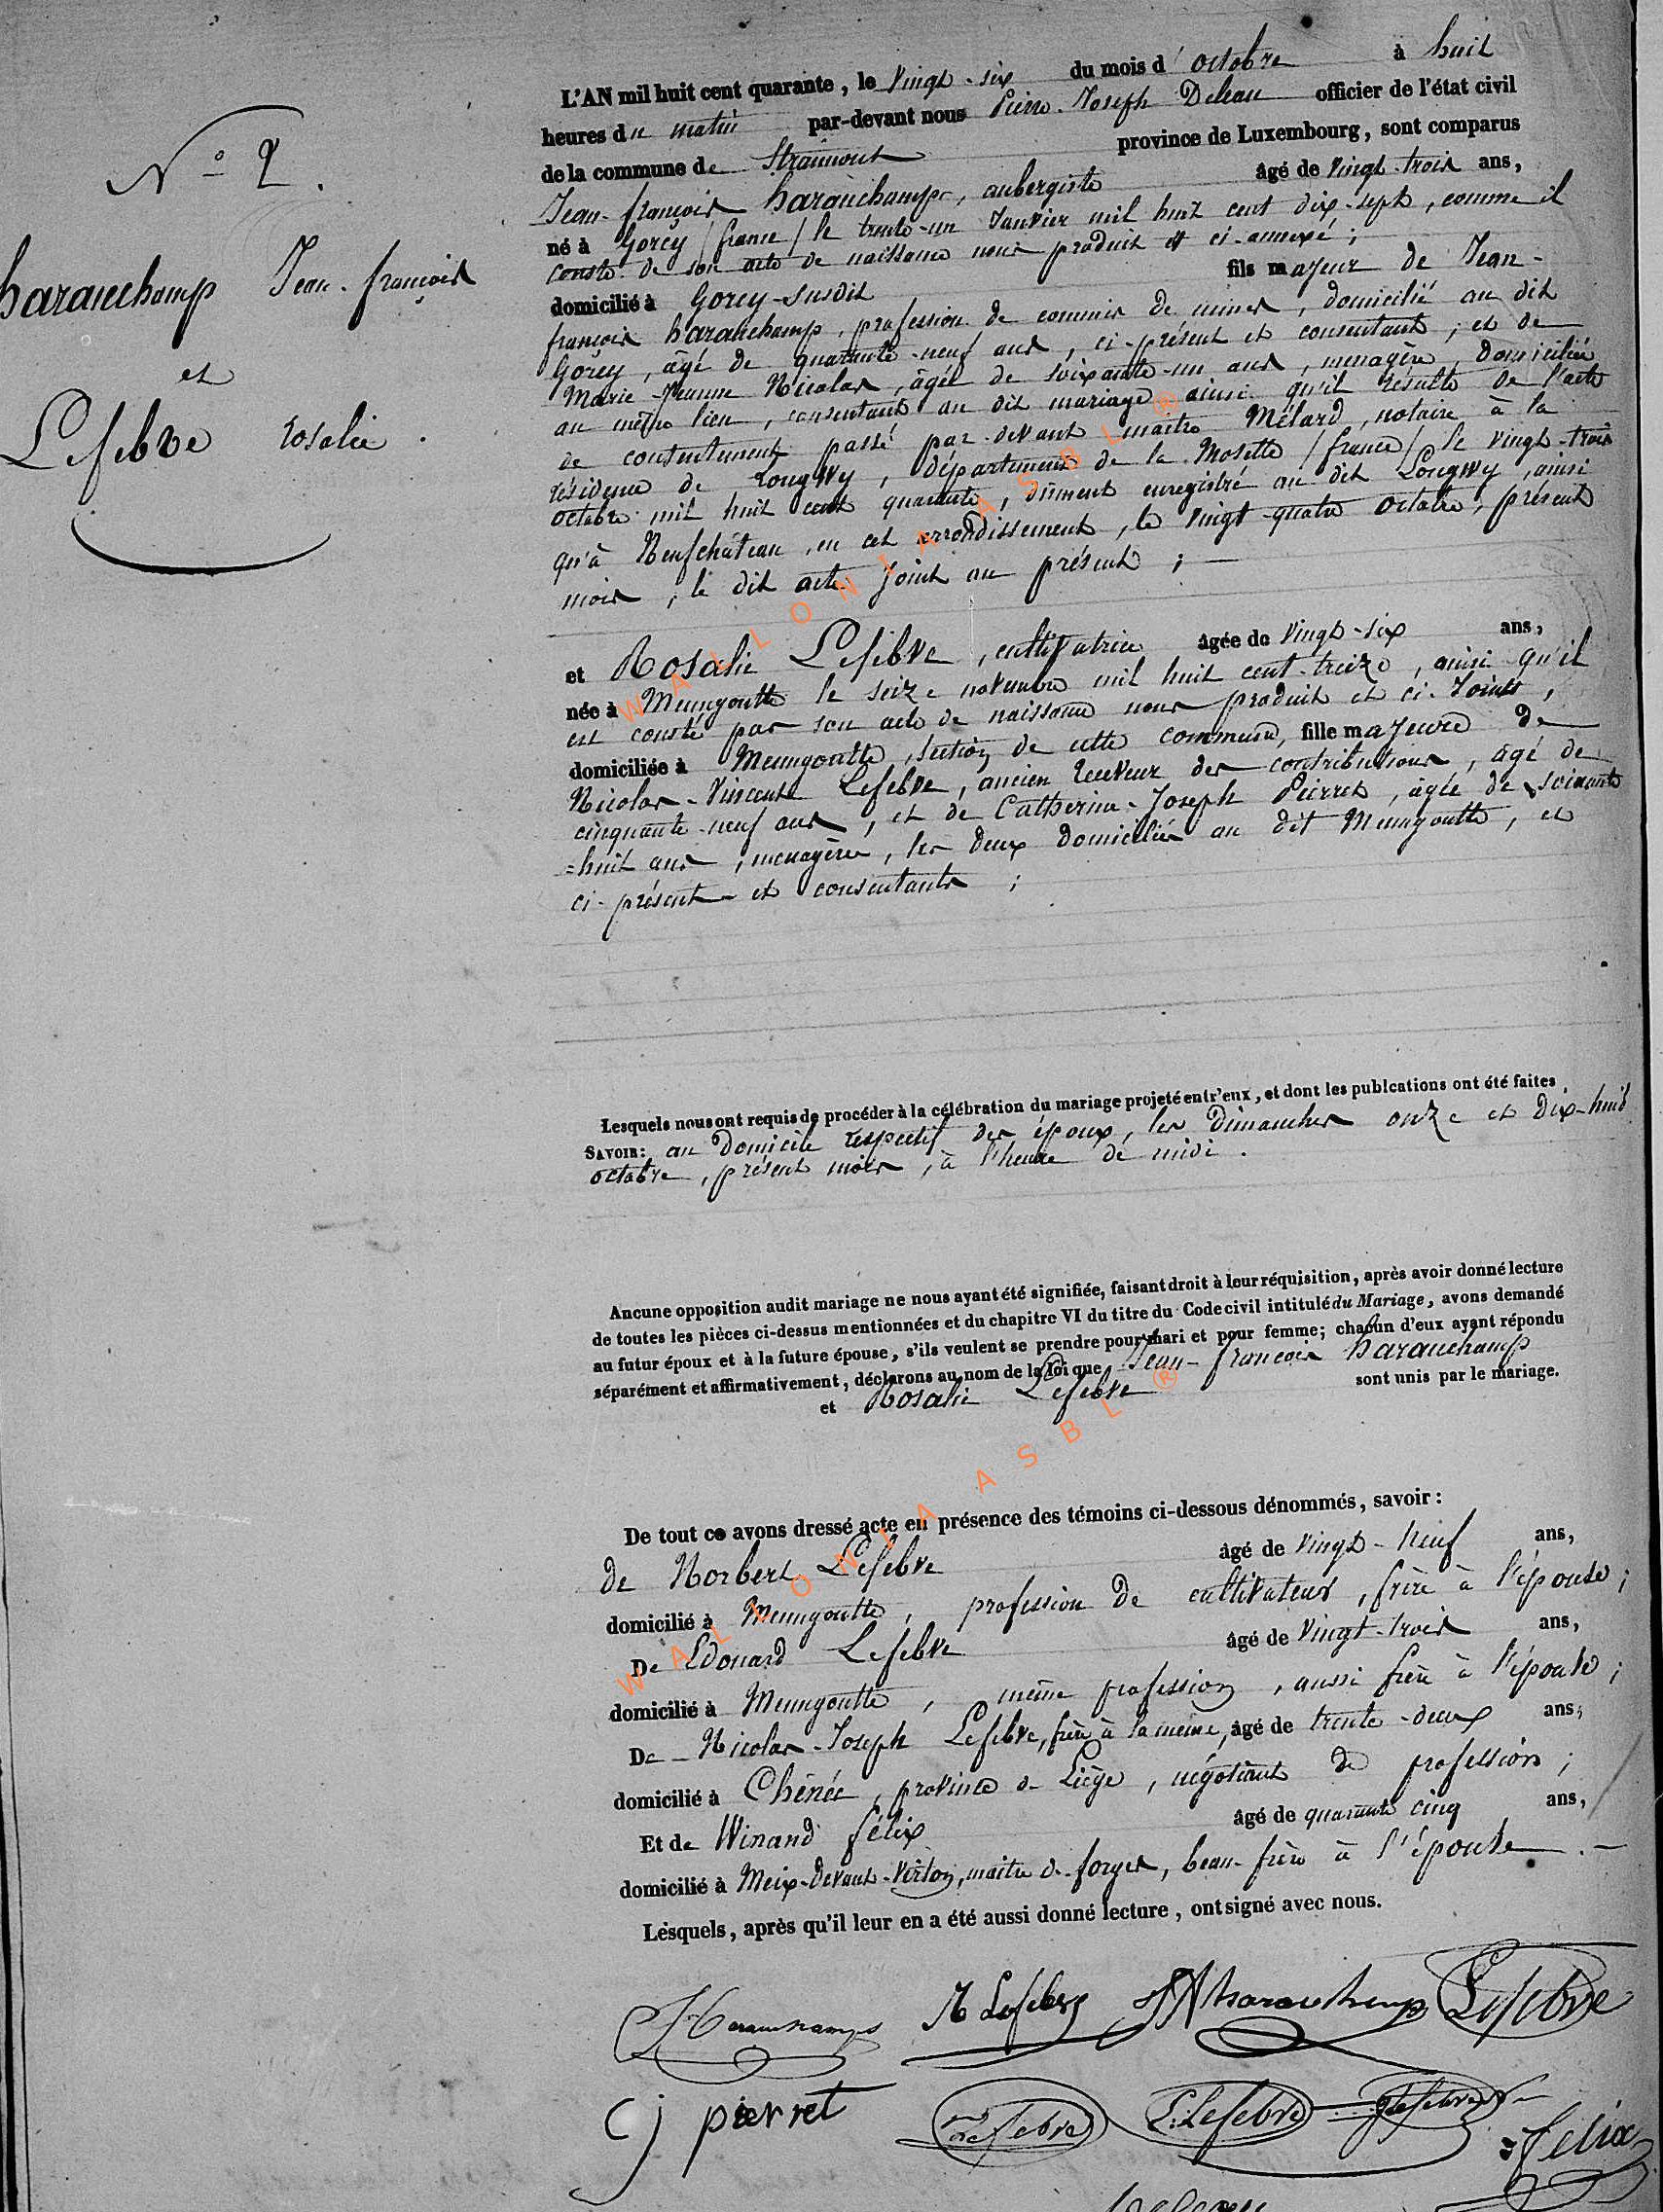 N° 2.
harauchamp Jean-françois
et
Lefebve rosalie.
L'AN mil huit cent quarante, le vingt-six du mois d'octobre à huit
heures du matin par-devant nous Pierre-Joseph Deleau officier de l'état civil
de la commune de Straimont province de Luxembourg, sont comparus
Jean-françois harauchamp, aubergiste âgé de vingt-trois ans,
né à Gorcy /france/ le trente-un Janvier mil huit cent dix-sept, comme il
conste de son acte de naissance nous produit et ci-annexé;
domicilié à Gorcy-susdit fils majeur de Jean-
françois harauchamp, profession de commis de mines, domicilié au dit
Gorcy, âgé de quarante-neuf ans, ci-présent et consentant; et de
Marie-Jeanne Nicolas, âgée de soixante-un ans, menagère, domiciliée
au même lieu, consentant au dit mariage ainsi qu'il résulte de l'acte
de consentement passé par-devant maitre Mélard, notaire à la
résidence de Longwy, département de la Moselle /france/ le vingt-trois
octobre mil huit cent quarante, dûment enregistré au dit Longwy, ainsi
qu'à Neufchâteau, en cet arrondissement, le vingt-quatre octobre, présent
mois, le dit acte joint au présent;
et Rosalie Lefebve, cultivatrice âgée de vingt-six ans,
née à Menugoutte le seize novembre mil huit cent-treize, ainsi qu'il
est consté par son acte de naissance nous produit et ci-Joints,
domiciliée à Menugoutte, section de cette commune, fille majeure de
Nicolas-Vincent Lefebve, ancien receveur des contributions, âgé de
cinquante-neuf ans, et de Catherine-Joseph Pierret, âgée de soixante
=huit ans, menagère, les deux domiciliés au dit Menugoutte, et
ci-présents et consentants;
Lesquels nous ont requis de procéder à la célébration du mariage projeté entr'eux, et dont les publcations ont été faites,
SAVOIR: au Domicile respectif des époux, les Dimanches onze et Dix-huit
octobre, présent mois, à l'heure de midi.
Aucune opposition audit mariage ne nous ayant été signifiée, faisant droit à leur réquisition, après avoir donné lecture
de toutes les pièces ci-dessus mentionnées et du chapitre VI du titre du Code civil intitulé du Mariage, avons demandé
au futur époux et à la future épouse, s'ils veulent se prendre pour mari et pour femme; chacun d'eux ayant répondu
séparément et affirmativement, déclarons au nom de la loi que Jean-francois harauchamp
et Rosalie Lefebve sont unis par le mariage.
De tout ce avons dressé acte en présence des témoins ci-dessous dénommés, savoir:
de Norbert Lefebve âgé de vingt-neuf ans,
domicilié à Menugoutte, profession de cultivateur, frère à l'épouse;
De Edouard Lefebve âgé de vingt-trois ans,
domicilié à Menugoutte, même profession, aussi frère à l'épouse;
De Nicolas-Joseph Lefebve, frère à la même, âgé de trente-deux ans,
domicilié à Chênée, province de Liège, négociant de profession;
Et de Winand félix âgé de quarante cinq ans,
domicilié à Meix-Devant-Virton, maitre de forges, beau-frère à l'épouse.
Lesquels, après qu'il leur en a été aussi donné lecture, ont signé avec nous.
Harauchamps R Lefebve harauchamp Lefebve
cj pierret Lefebve E. Lefebve Lefebve
felix
WALLONIA ASBL ®
WALLONIA ASBL ®